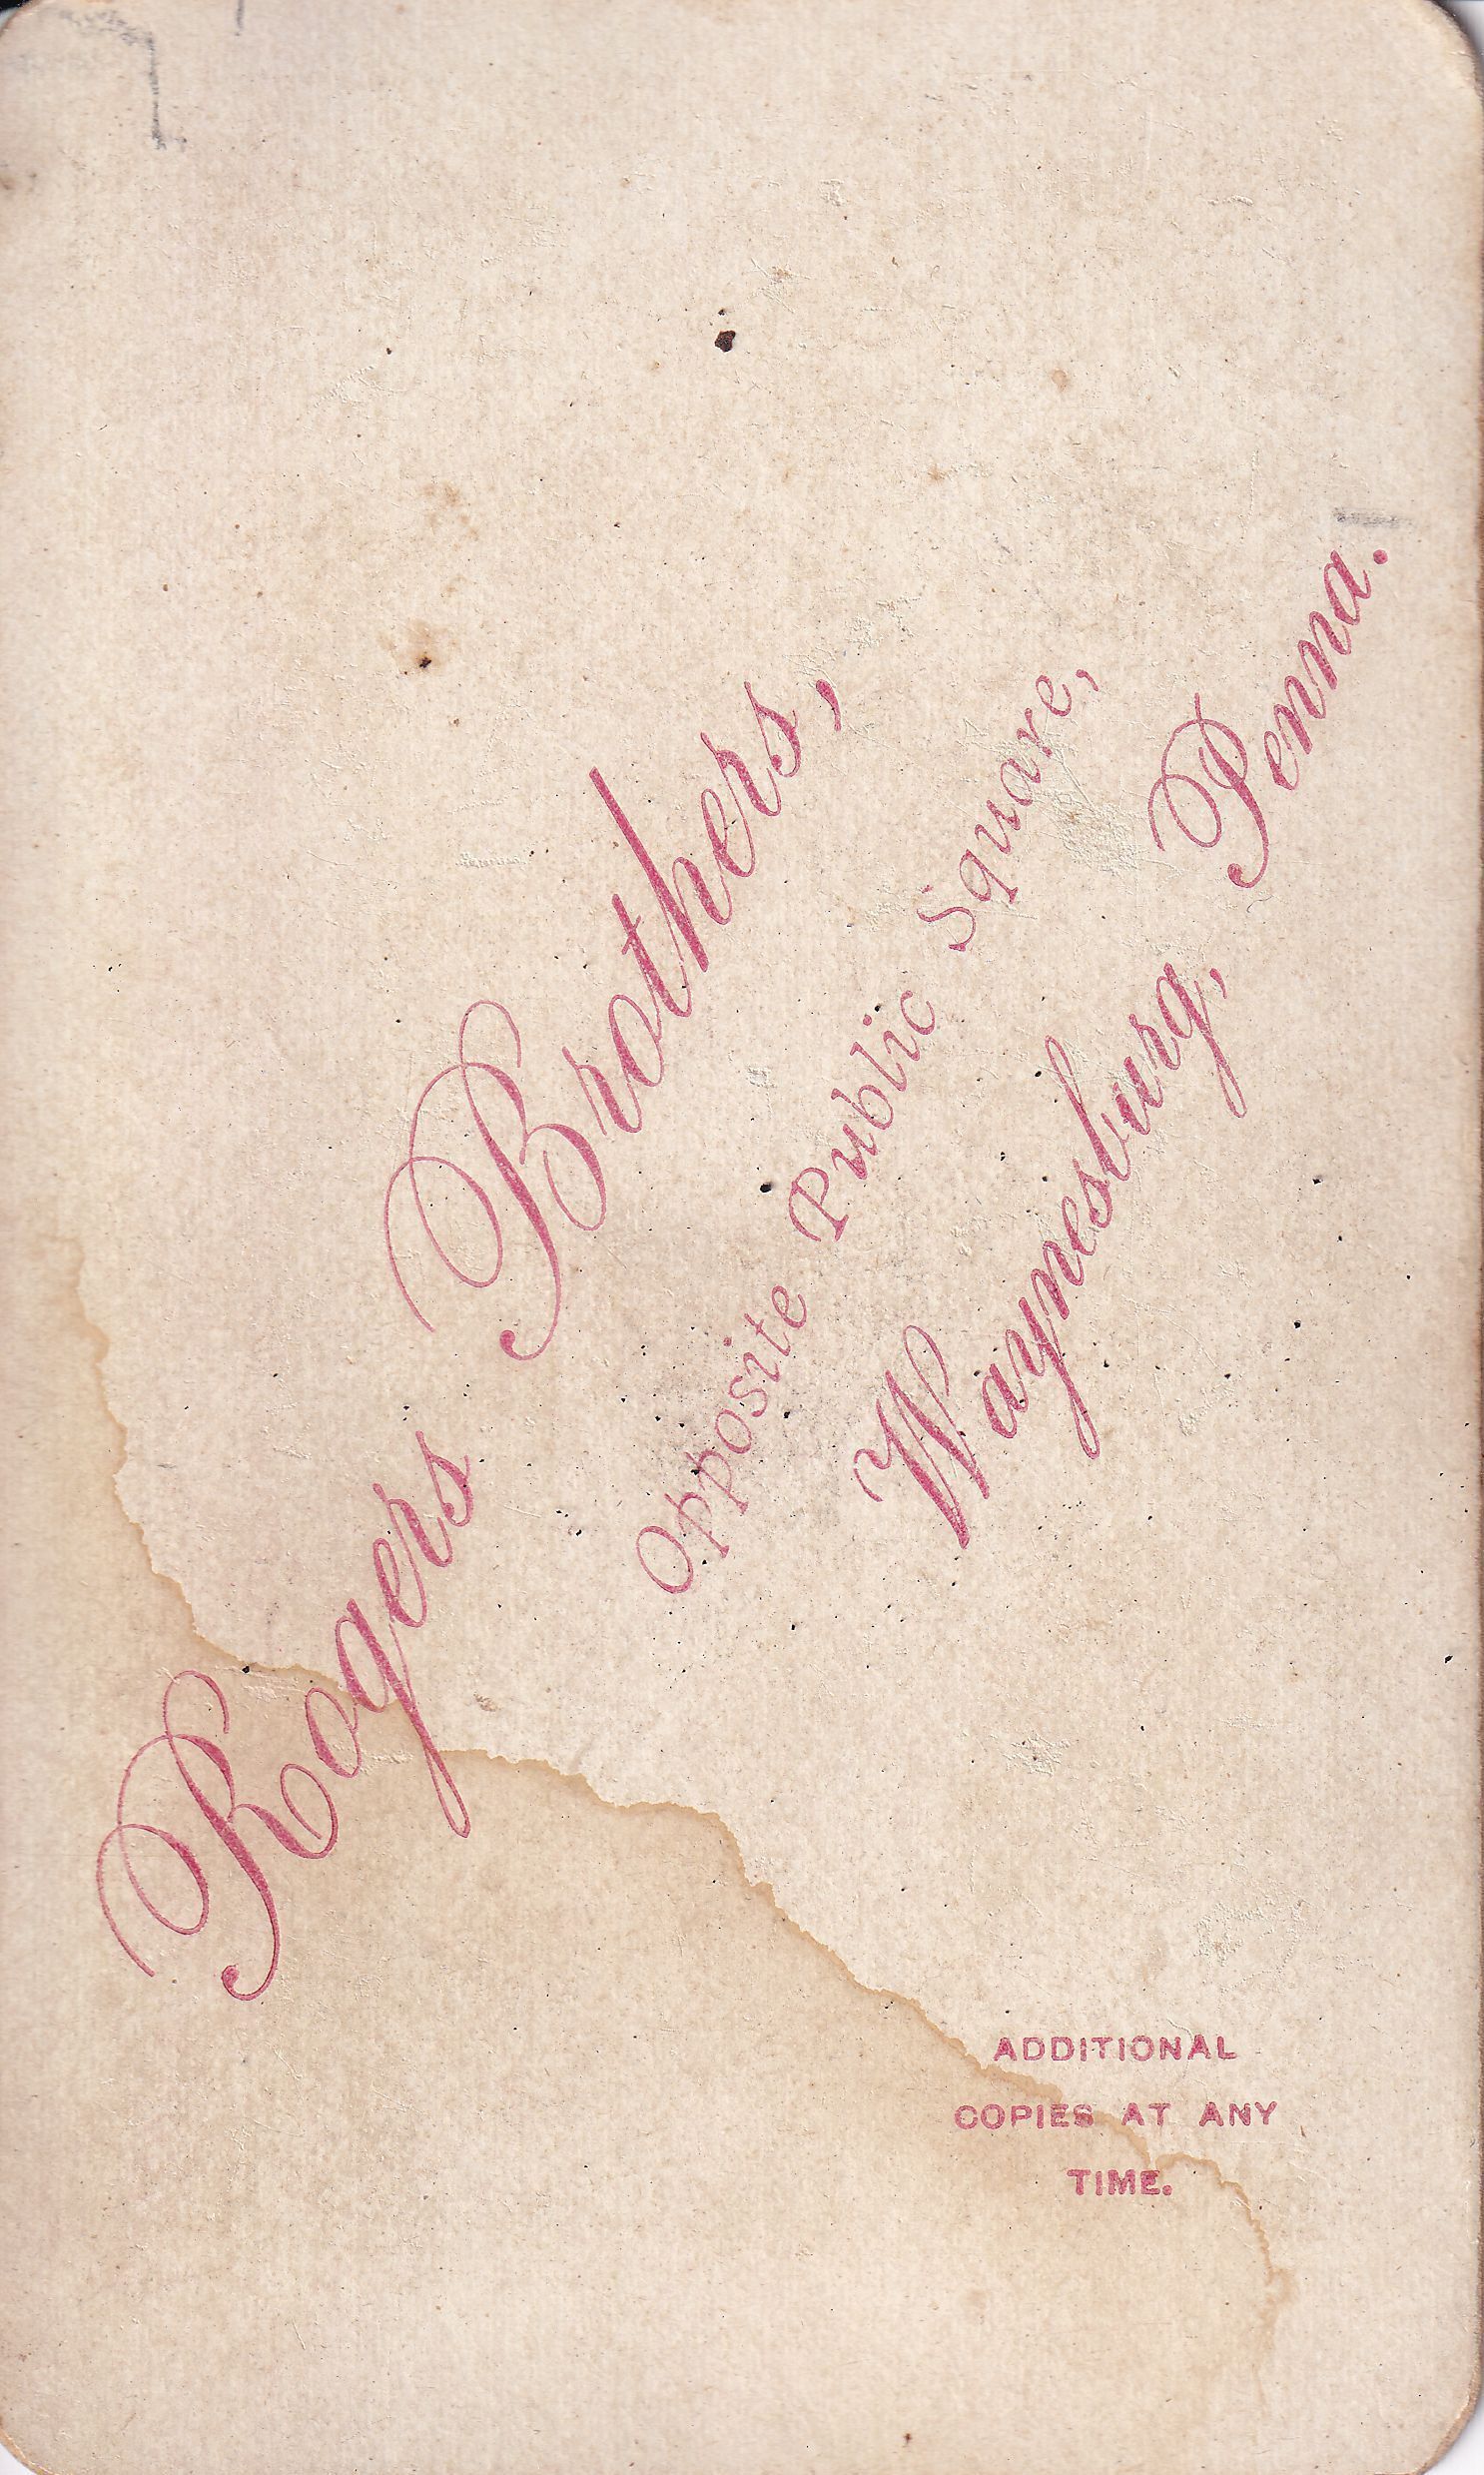 Rogers Brothers,
Opposite Public Square,
Waynesburg, Penna.
ADDITIONAL
COPIES AT ANY
TIME.